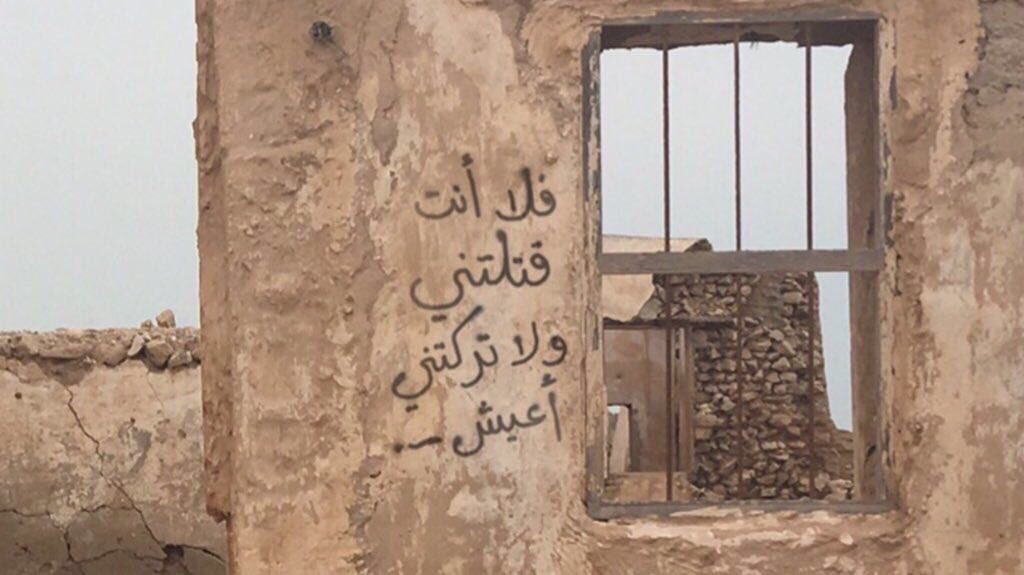 فلا أنت
قتلتني
ولا تركتني
أعيش ..